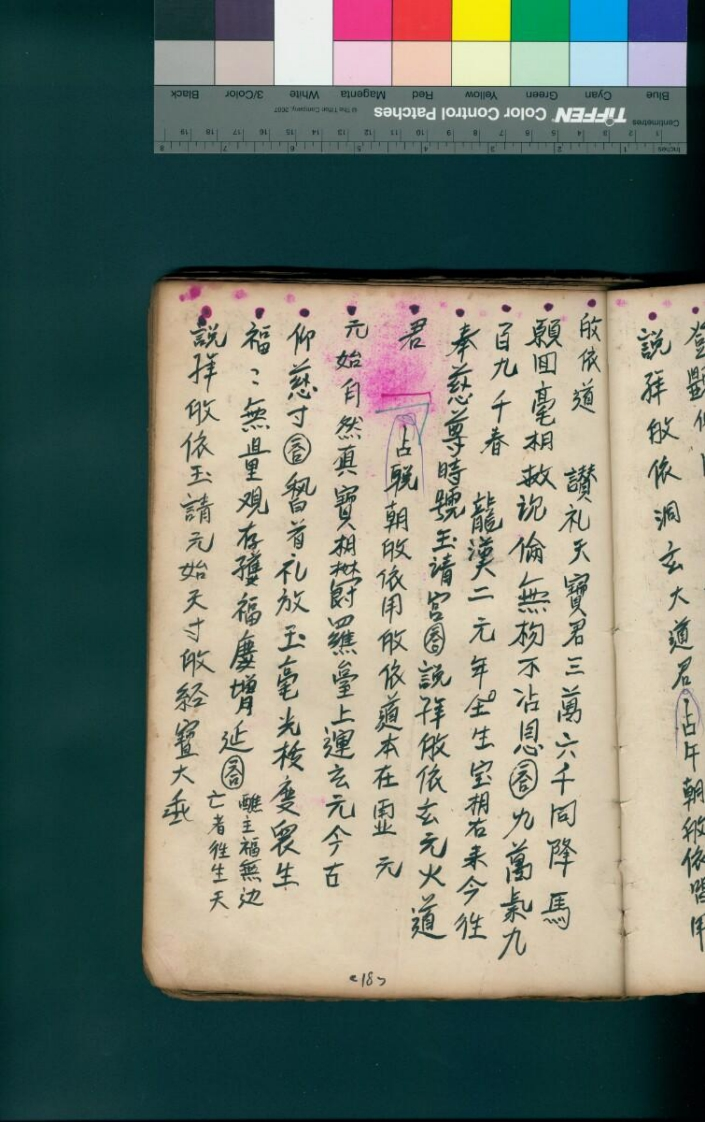 說拜皈依洞玄大道君占午朝皈依
皈依道　讚礼天寶君三萬六千同降馬
願回毫相救沉倫無物不沾恩 答 九萬氣九
百九千春　龍漢二元年 生宝相古来今往
奉慈尊時號玉請宮 答 說拜皈依玄元火道
君　占晚朝皈依用皈依道本在 元
元始自然真寶相 羅臺上運玄元今古
仰慈寸 答 首礼放玉毫光 度衆生
福〻無量观存獲福慶增延 答 醮主福無边
亡者往生天
說拜皈依玉請元始天寸皈經寶大
<18>
Blue Cyan Green Yellow Red Magenta White 3/Color Black
TIFFEN Color Control Patches © The Tiffen Company, 2007
Centimetres 1 2 3 4 5 6 7 8 9 10 11 12 13 14 15 16 17 18 19
Inches 1 2 3 4 5 6 7 8